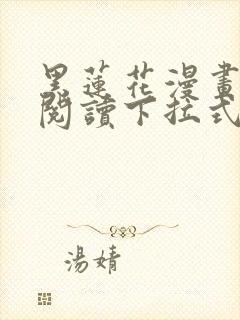 黑蓮花漫畫
閱讀下拉式
湯婧